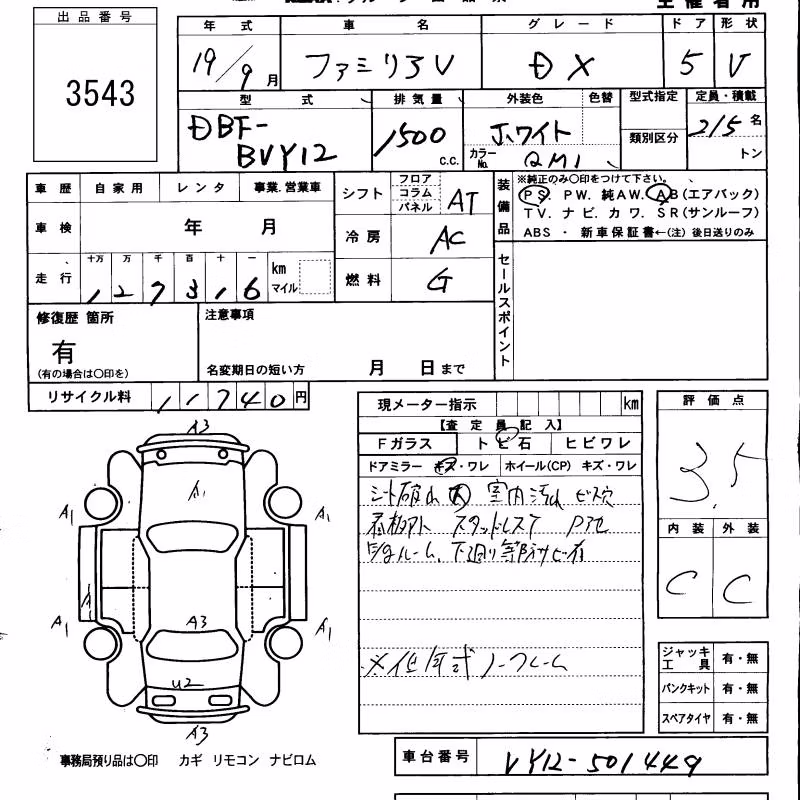 主催者用
出品番号
3543
年式 車名 グレード ドア 形状
19/9月 ファミリアV DX 5 V
型式 排気量 外装色 色替 型式指定 定員・積載
DBF-BVY12 1500 c.c. ホワイト カラーNo. QM1 類別区分 2/5 名 トン
車歴 自家用 レンタ 事業.営業車
シフト フロア コラム パネル AT
装備品 ※純正のみ〇印をつけて下さい。
PS. PW. 純AW. AB(エアバック)
TV. ナビ. カワ. SR(サンルーフ)
ABS ・ 新車保証書←(注) 後日送りのみ
車検 年 月
冷房 AC
走行 十万 万 千 百 十 一
127316 km マイル
燃料 G
セールスポイント
修復歴 箇所
有
(有の場合は〇印を)
注意事項
名変期日の短い方 月 日まで
リサイクル料 11740円
現メーター指示 km
【査定員記入】
Fガラス トビ石 ヒビワレ
ドアミラー キズ・ワレ ホイール(CP) キズ・ワレ
シート破れ 大 室内汚れ ビス穴
看板アト スタッドレスT
ルーム、下廻り等
※低年式ノークレーム
評価点
3.5
内装 外装
C C
A3
A1
A1 A1
A1
A1 A3 A1
U2
A3
ジャッキ 工具 有・無
パンクキット 有・無
スペアタイヤ 有・無
事務局預り品は〇印 カギ リモコン ナビロム
車台番号 VY12-501449